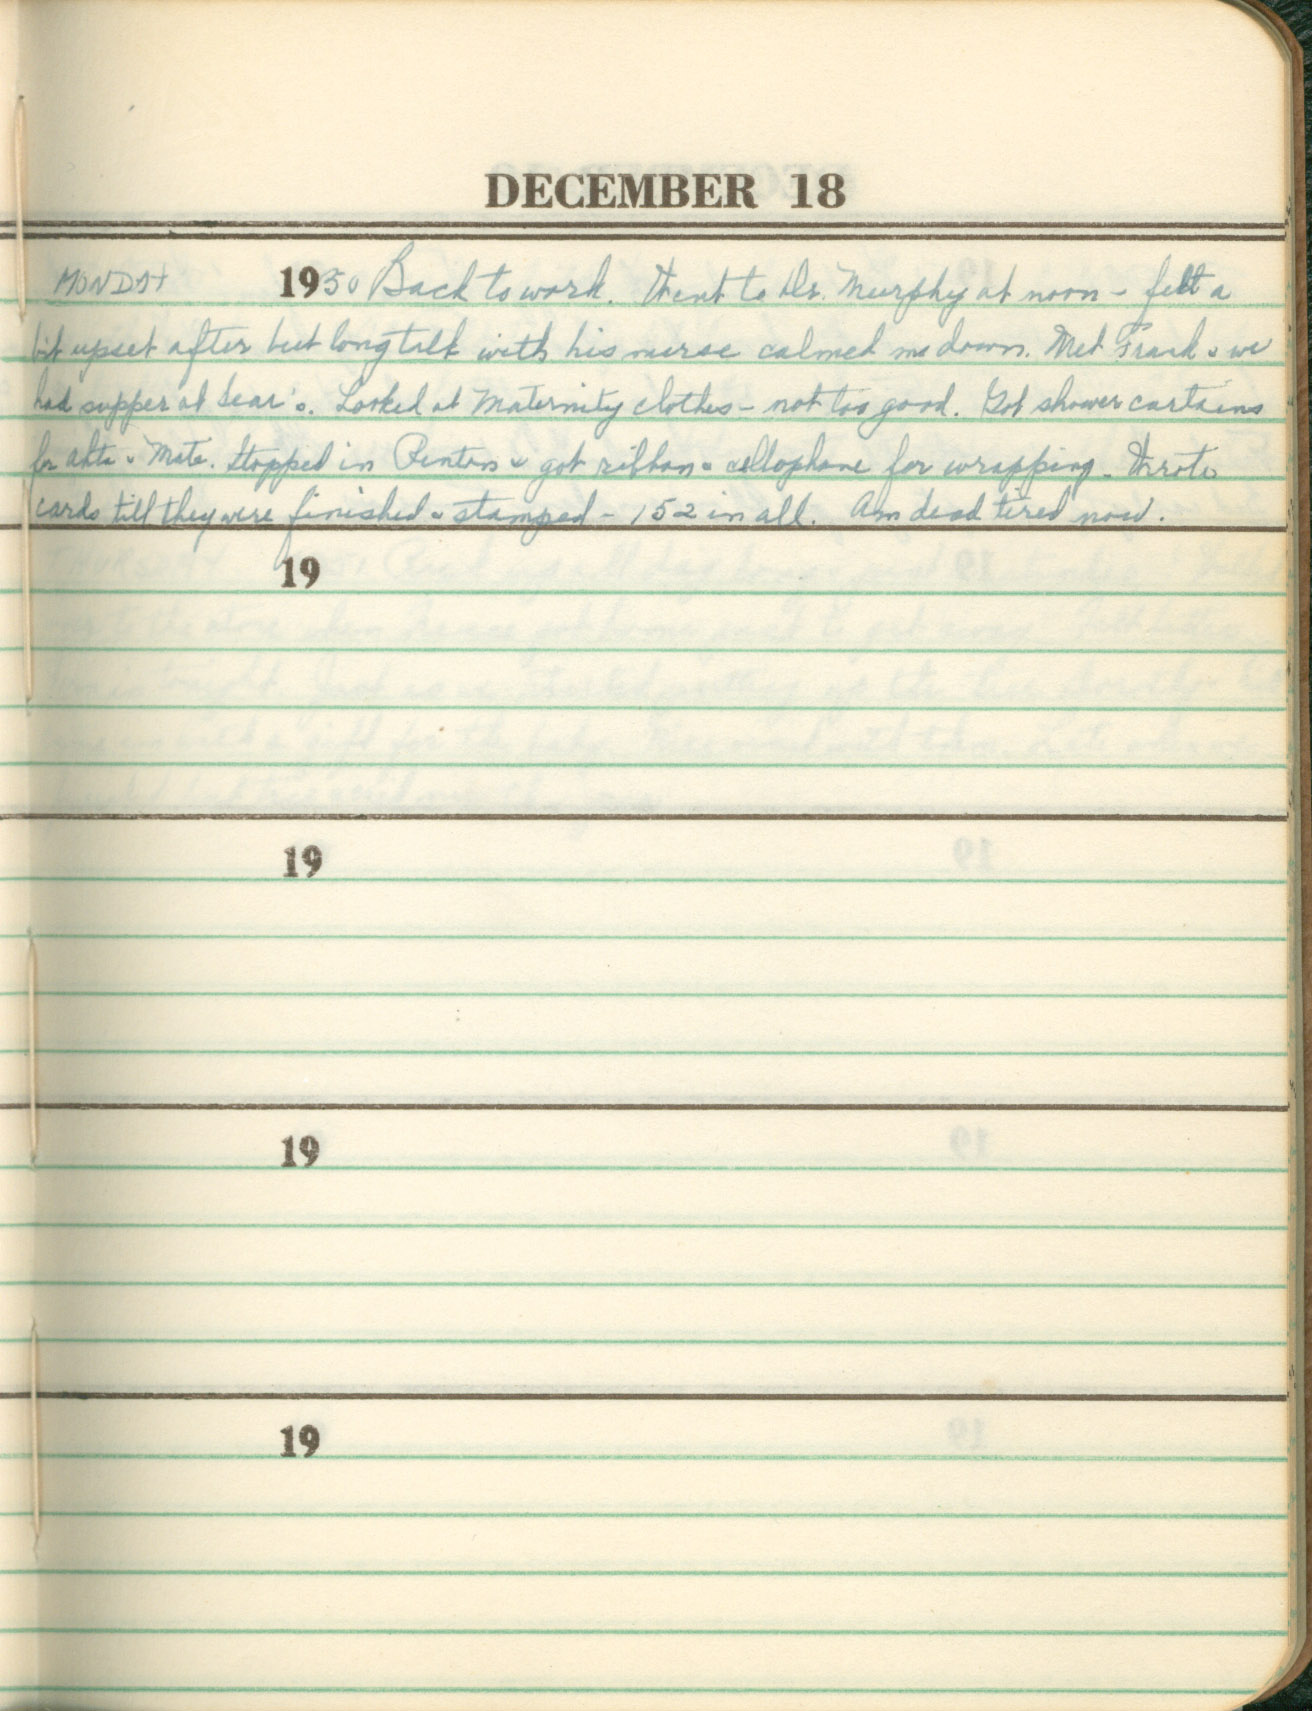 DECEMBER 18
MONDAY 1950 Back to work. Went to Dr. Murphy at noon - felt a
bit upset after but long talk with his nurse calmed me down. Met Frank & we
had supper at Sear's. Looked at Maternity clothes - not too good. Got shower curtains
for & Mate. Stopped in & got ribbon & cellophane for wrapping. Wrote
cards till they were finished & stamped - 152 in all. Am dead tired now.
19
19
19
19